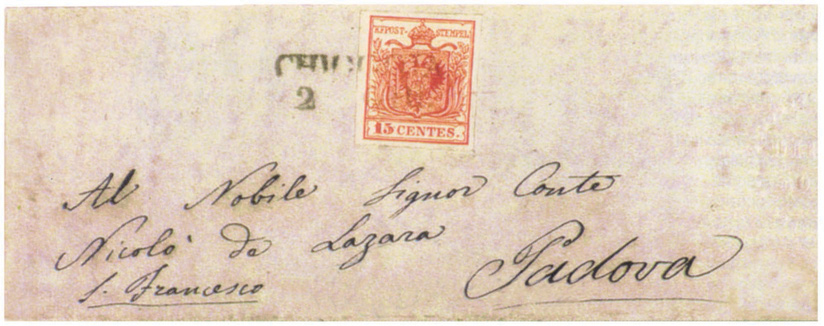 KKPOST-STEMPEL
2
15 CENTES.
Al Nobile Signor Conte
Nicolò de Lazara
S. Francesco
Padova